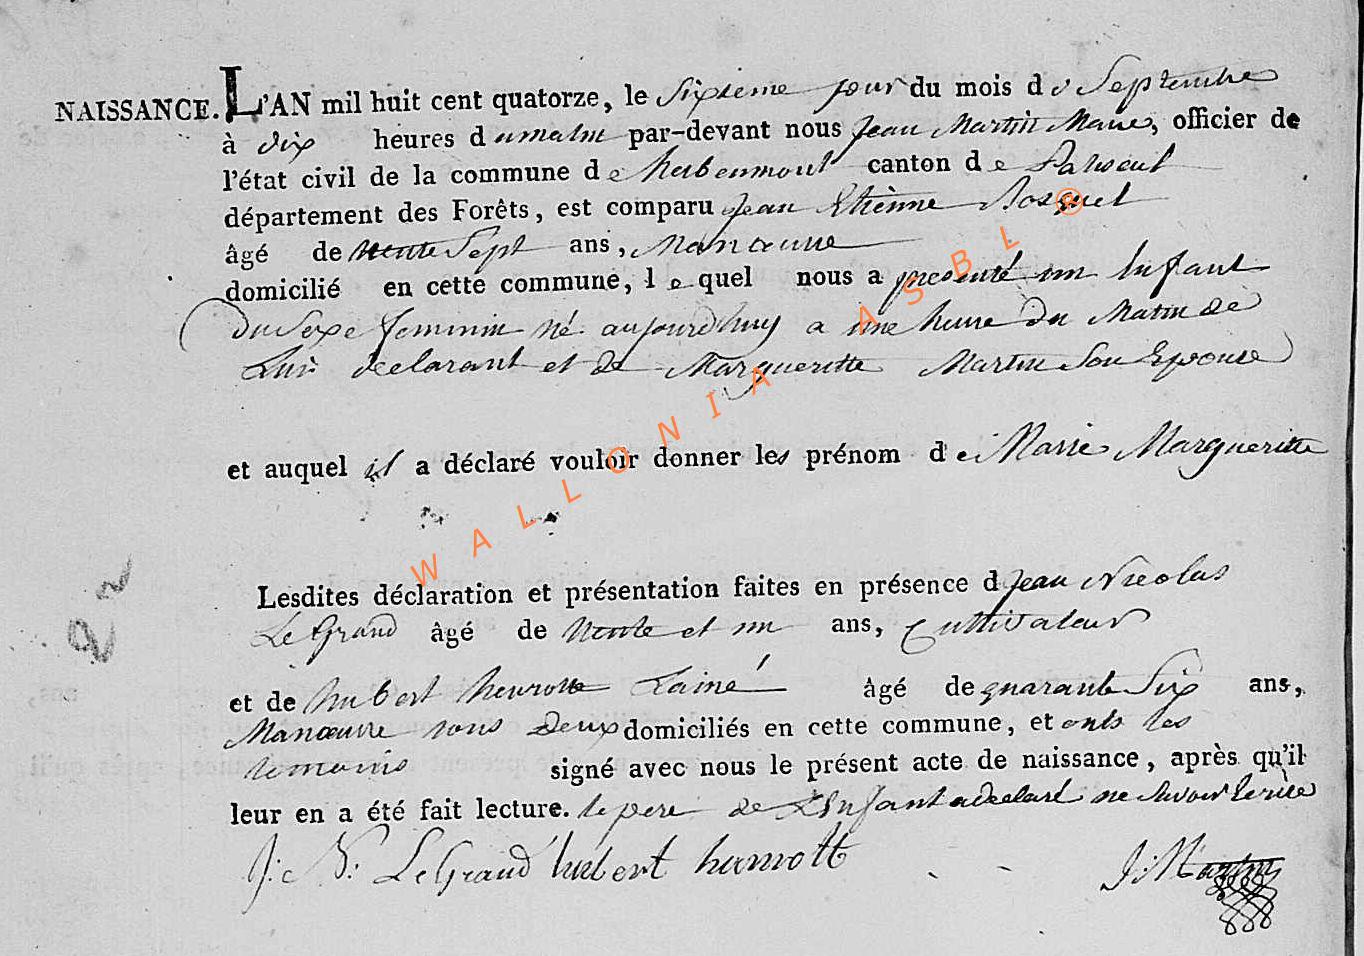 NAISSANCE. L'AN mil huit cent quatorze, le Sixieme jour du mois de Septembre
à dix heures du matin par-devant nous Jean Martin Marie, officier de
l'état civil de la commune de herbeumont canton de Paliseul
département des Forêts, est comparu Jean Etiênne Bosquet
âgé de trente Sept ans, Manœuvre
domicilié en cette commune, lequel nous a presenté un Enfant
du Sexe feminin né aujourdhuy a une heure du Matin de
Lui declarant et de Margueritte Martin Son Epouse
et auquel il a déclaré vouloir donner les prénom de Marie Margueritte
Lesdites déclaration et présentation faites en présence d Jean Nicolas
Le Grand âgé de trente et un ans, Cultivateur
et de hubert henrotte Lainé âgé de quarante Six ans,
Manœuvre tous deux domiciliés en cette commune, et onts les
temoins signé avec nous le présent acte de naissance, après qu'il
leur en a été fait lecture. le pere de L'Enfant a declaré ne Savoir Ecrire
J: N: LeGrand hubert henrott J: Martin
WALLONIA ASBL ®